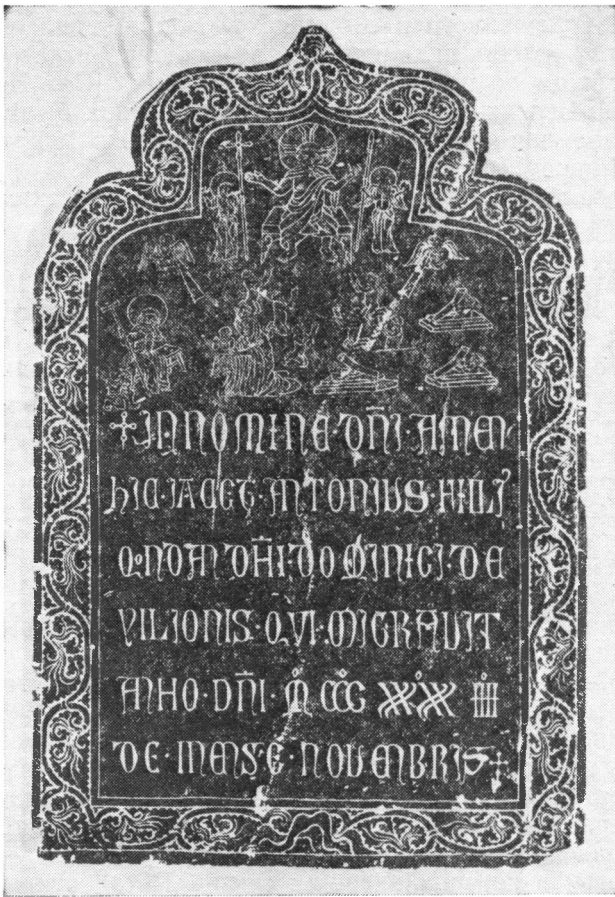 ✢ IN NOMINE DÑI AMEN
HIC · IACET · ANTONIUS · FILI⁹
QONDAM DÑI · DOMINICI · DE
VILIONIS · QVI · MIGRAUIT
ANNO · DÑI · M̊ CCC̊ XX̊XX̊ IIII̊
DE · MENSE · NOUEMBRIS ✢